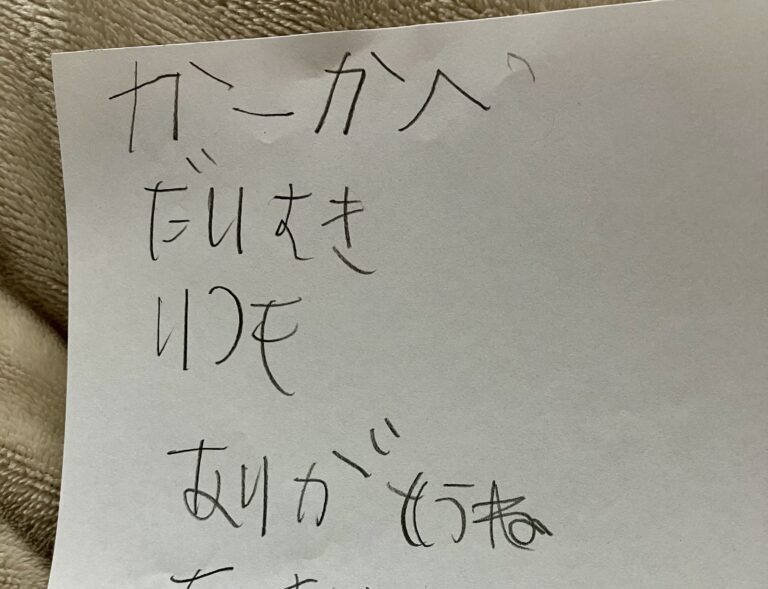 かーかへ
だいすき
いつも
ありがとうね